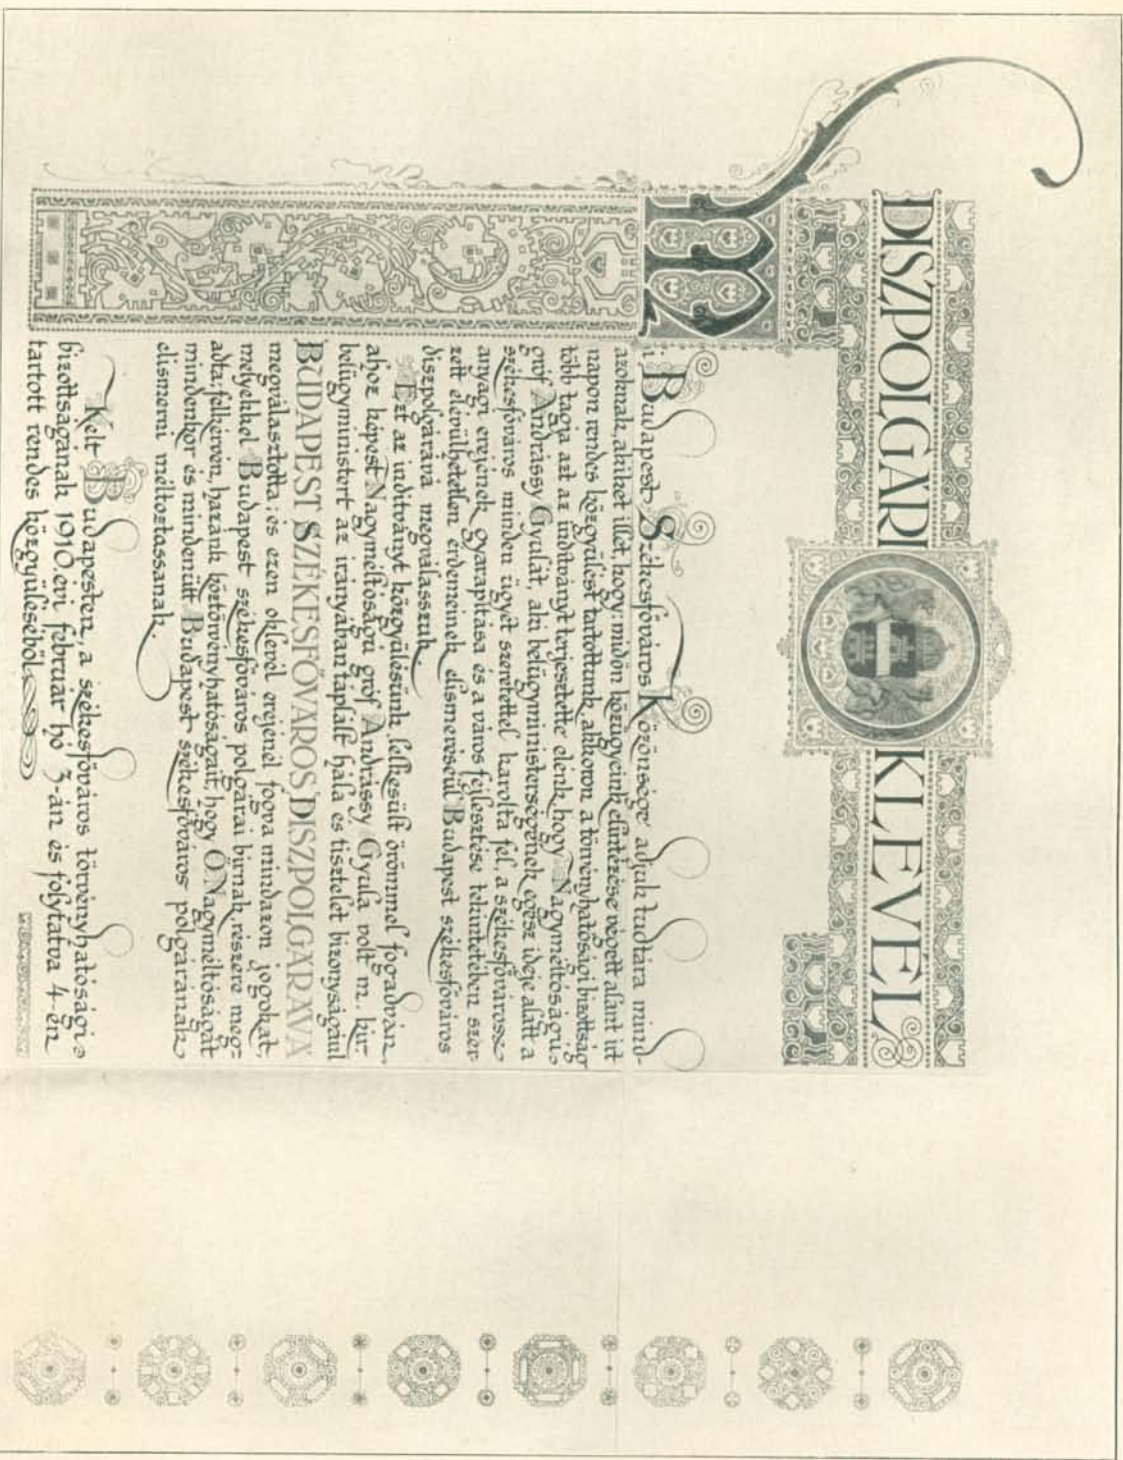 DISZPOLGÁRI OKLEVÉL
Mi Budapest Székesfőváros Közönsége adjuk tudtára mind-
azoknak, akiket illet, hogy: midőn közügyeink elintézése végett alant irt
napon rendes közgyülést tartottunk, akkoron a törvényhatósági bizottság
több tagja azt az inditványt terjesztette elénk, hogy Nagyméltóságu
gróf Andrássy Gyulát, aki belügyministerségének egész ideje alatt a
székesfőváros minden ügyét szeretettel karolta fel, a székesfőváros
anyagi erejének gyarapitása és a város fejlesztése tekintetében szer-
zett elévülhetetlen érdemeinek elismeréseül Budapest székesfőváros
diszpolgárává megválasszuk.
Ezt az inditványt közgyülésünk lelkesült örömmel fogadván,
ahoz képest Nagyméltóságu gróf Andrássy Gyula volt m. kir.
belügyministert az irányában táplált hála és tisztelet bizonyságául
BUDAPEST SZÉKESFŐVÁROS DISZPOLGÁRÁVÁ
megválasztotta; és ezen oklevél erejénél fogva mindazon jogokat,
melyekkel Budapest székesfőváros polgárai birnak, részére meg-
adta; felkérvén, hazánk köztörvényhatóságait, hogy Ő Nagyméltóságát
mindenkor és mindenütt Budapest székesfőváros polgárának
elismerni méltóztassanak.
Kelt Budapesten, a székesfőváros törvényhatósági
bizottságának 1910. évi február hó 3-án és folytatva 4-én
tartott rendes közgyüléséből.